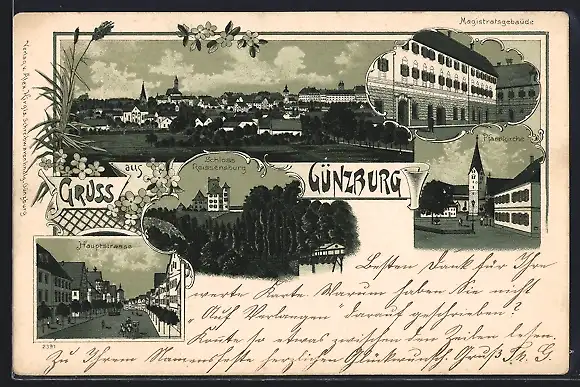 Magistratsgebäude
Pfarrkirche
Schloss
Reissensburg
GRUSS aus GÜNZBURG
Hauptstrasse
Besten Dank für Ihre
werte Karte Warum haben Sie nicht
Auf Verlangen darauf geschrieben?
Könnte so etwas zwischen den Zeilen lesen
Zu Ihrem Namensfeste herzlichen Glückwunsch. Gruß
2391